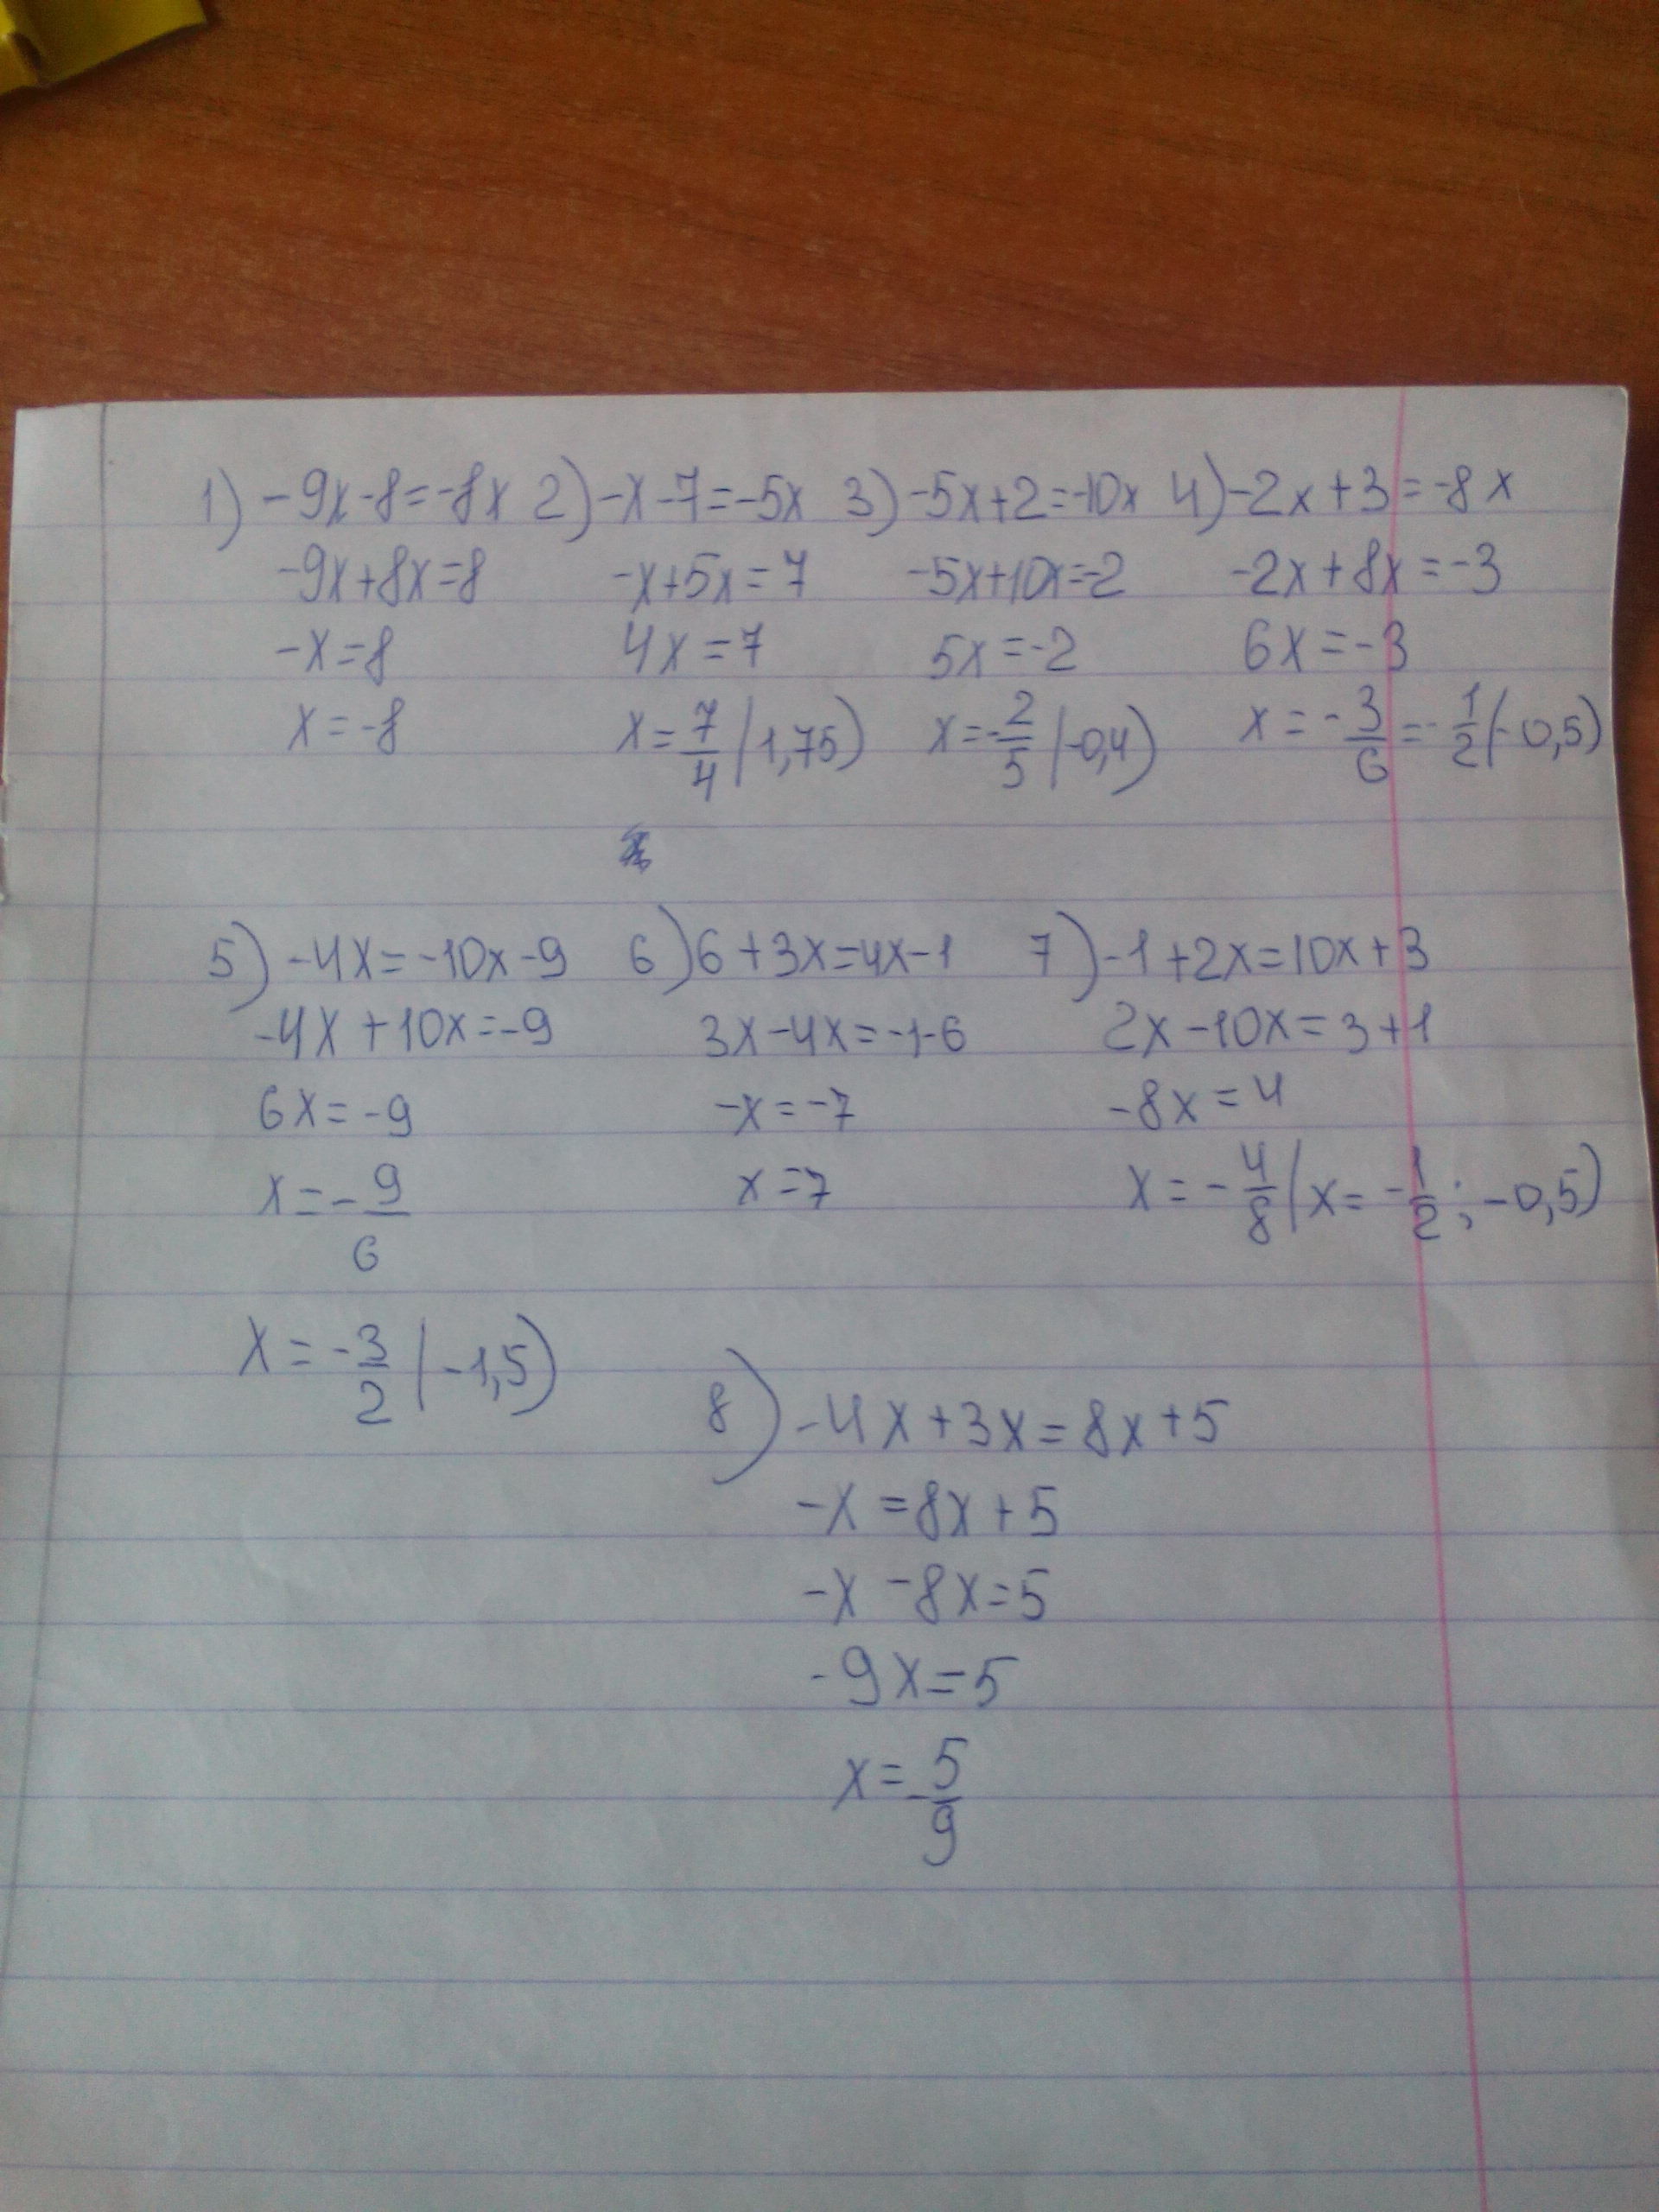 1) -9x-8=-8x 2) -x-7=-5x 3) -5x+2=-10x 4) -2x+3=-8x
-9x+8x=8 -x+5x=7 -5x+10x=-2 -2x+8x=-3
-x=8 4x=7 5x=-2 6x=-3
x=-8 x=7/4 (1,75) x=-2/5 (-0,4) x=-3/6=-1/2(-0,5)
5) -4x=-10x-9 6) 6+3x=4x-1 7) -1+2x=10x+3
-4x+10x=-9 3x-4x=-1-6 2x-10x=3+1
6x=-9 -x=-7 -8x=4
x=-9/6 x=7 x=-4/8 (x=-1/2; -0,5)
x=-3/2 (-1,5)
8) -4x+3x=8x+5
-x=8x+5
-x-8x=5
-9x=5
x=-5/9